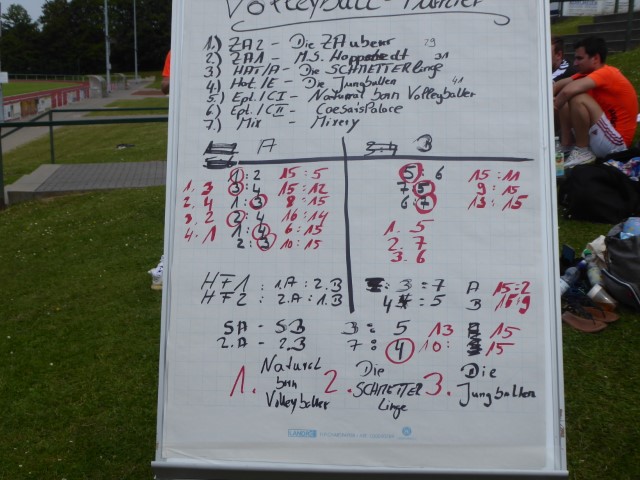 Volleyball-Turnier
1.) ZA2 - Die ZAuberer 29
2.) ZA1 - M.S. Hoppstedt 31
3) HAT/A - Die SCHMETTERlinge
4.) Hat. IE - Die Jungballen 41
5.) Epl. ICI - Natural born Volleyballer
6) Epl. ICII - CaesarsPalace
7.) Mix - Mixery
A B
1 : 2 15 : 5
5 : 6 15 : 11
1. 3 3 : 4 15 : 12
7 : 5 9 : 15
2. 4 1 : 3 8 : 15
6 : 7 13 : 15
3. 2 2 : 4 16 : 14
4. 1 1 : 4 6 : 15
1. 5
2 : 3 10 : 15
2. 7
3. 6
HF1 : 1.A : 2.B
3 = 7 A 15:2
HF2 : 2.A : 1.B
4 : 5 B 15:9
SA - SB 3 : 5 13 15
2.A - 2.B 7 : 4 10 : 15
1. Natural born Volleyballer
2. Die SCHMETTERlinge
3. Die Jungballen